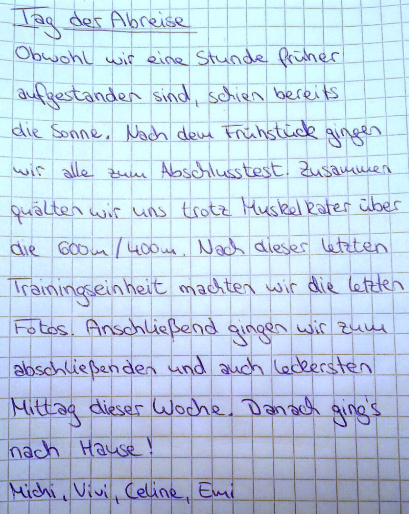 Tag der Abreise
Obwohl wir eine Stunde früher
aufgestanden sind, schien bereits
die Sonne. Nach dem Frühstück gingen
wir alle zum Abschlusstest. Zusammen
quälten wir uns trotz Muskelkater über
die 600m/400m. Nach dieser letzten
Trainingseinheit machten wir die letzten
Fotos. Anschließend gingen wir zum
abschließenden und auch leckersten
Mittag dieser Woche. Danach ging's
nach Hause!
Michi, Vivi, Celine, Emi